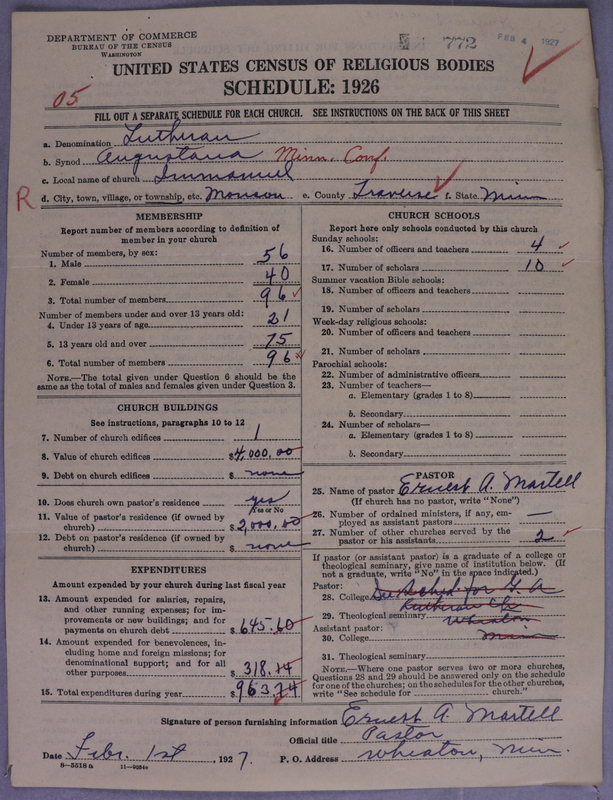 DEPARTMENT OF COMMERCE
BUREAU OF THE CENSUS
WASHINGTON
772
FEB 4 1927
UNITED STATES CENSUS OF RELIGIOUS BODIES
SCHEDULE: 1926
05
FILL OUT A SEPARATE SCHEDULE FOR EACH CHURCH. SEE INSTRUCTIONS ON THE BACK OF THIS SHEET
a. Denomination Lutheran
b. Synod Augustana Minn. Conf.
c. Local name of church Immanuel
R d. City, town, village, or township, etc. Monson e. County Traverse f. State Minn
MEMBERSHIP
Report number of members according to definition of
member in your church
Number of members, by sex:
1. Male 56
2. Female 40
3. Total number of members 96
Number of members under and over 13 years old:
4. Under 13 years of age 21
5. 13 years old and over 75
6. Total number of members 96
NOTE.—The total given under Question 6 should be the
same as the total of males and females given under Question 3.
CHURCH BUILDINGS
See instructions, paragraphs 10 to 12
7. Number of church edifices 1
8. Value of church edifices $4,000.00
9. Debt on church edifices $ none
10. Does church own pastor's residence yes
Yes or No
11. Value of pastor's residence (if owned by
church) $2,000.00
12. Debt on pastor's residence (if owned by
church) $ none
EXPENDITURES
Amount expended by your church during last fiscal year
13. Amount expended for salaries, repairs,
and other running expenses; for im-
provements or new buildings; and for
payments on church debt $645.60
14. Amount expended for benevolences, in-
cluding home and foreign missions; for
denominational support; and for all
other purposes $318.14
15. Total expenditures during year $963.74
CHURCH SCHOOLS
Report here only schools conducted by this church
Sunday schools:
16. Number of officers and teachers 4
17. Number of scholars 10
Summer vacation Bible schools:
18. Number of officers and teachers
19. Number of scholars
Week-day religious schools:
20. Number of officers and teachers
21. Number of scholars
Parochial schools:
22. Number of administrative officers
23. Number of teachers—
a. Elementary (grades 1 to 8)
b. Secondary
24. Number of scholars—
a. Elementary (grades 1 to 8)
b. Secondary
PASTOR
25. Name of pastor Ernest A. Martell
(If church has no pastor, write "None")
26. Number of ordained ministers, if any, em-
ployed as assistant pastors —
27. Number of other churches served by the
pastor or his assistants 2
If pastor (or assistant pastor) is a graduate of a college or
theological seminary, give name of institution below. (If
not a graduate, write "No" in the space indicated.)
Pastor:
28. College See Sched for
29. Theological seminary Lutheran Ch
Assistant pastor: Wheaton
30. College Minn
31. Theological seminary
NOTE.—Where one pastor serves two or more churches,
Questions 28 and 29 should be answered only on the schedule
for one of the churches; on the schedules for the other churches,
write "See schedule for church."
Signature of person furnishing information Ernest A. Martell
Official title Pastor
Date Febr. 1st, 1927. P. O. Address Wheaton, Minn.
8—5518a 11—9054a